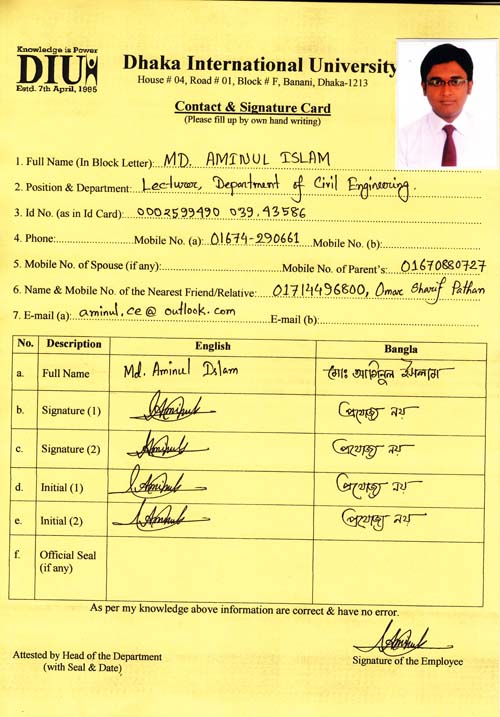 Knowledge is Power
DIU
Estd. 7th April, 1995
Dhaka International University
House # 04, Road # 01, Block # F, Banani, Dhaka-1213
Contact & Signature Card
(Please fill up by own hand writing)
1. Full Name (In Block Letter): MD. AMINUL ISLAM
2. Position & Department: Lecturer, Department of Civil Engineering.
3. Id No. (as in Id Card): 0002599490 039.43586
4. Phone: Mobile No. (a): 01674-290661 Mobile No. (b):
5. Mobile No. of Spouse (if any): Mobile No. of Parent's: 01670880727
6. Name & Mobile No. of the Nearest Friend/Relative: 01714496800, Omar Sharif Pathan
7. E-mail (a): aminul.ce@outlook.com E-mail (b):
No. Description English Bangla
a. Full Name Md. Aminul Islam মোঃ আমিনুল ইসলাম
b. Signature (1) Aminul প্রযোজ্য নয়
c. Signature (2) Aminul প্রযোজ্য নয়
d. Initial (1) Aminul প্রযোজ্য নয়
e. Initial (2) Aminul প্রযোজ্য নয়
f. Official Seal
(if any)
As per my knowledge above information are correct & have no error.
Aminul
Attested by Head of the Department Signature of the Employee
(with Seal & Date)